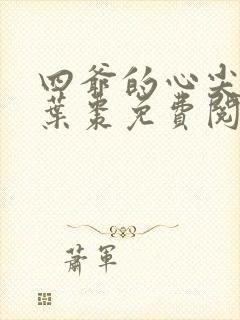 四爺的心尖
葉棗免費閱
蕭軍